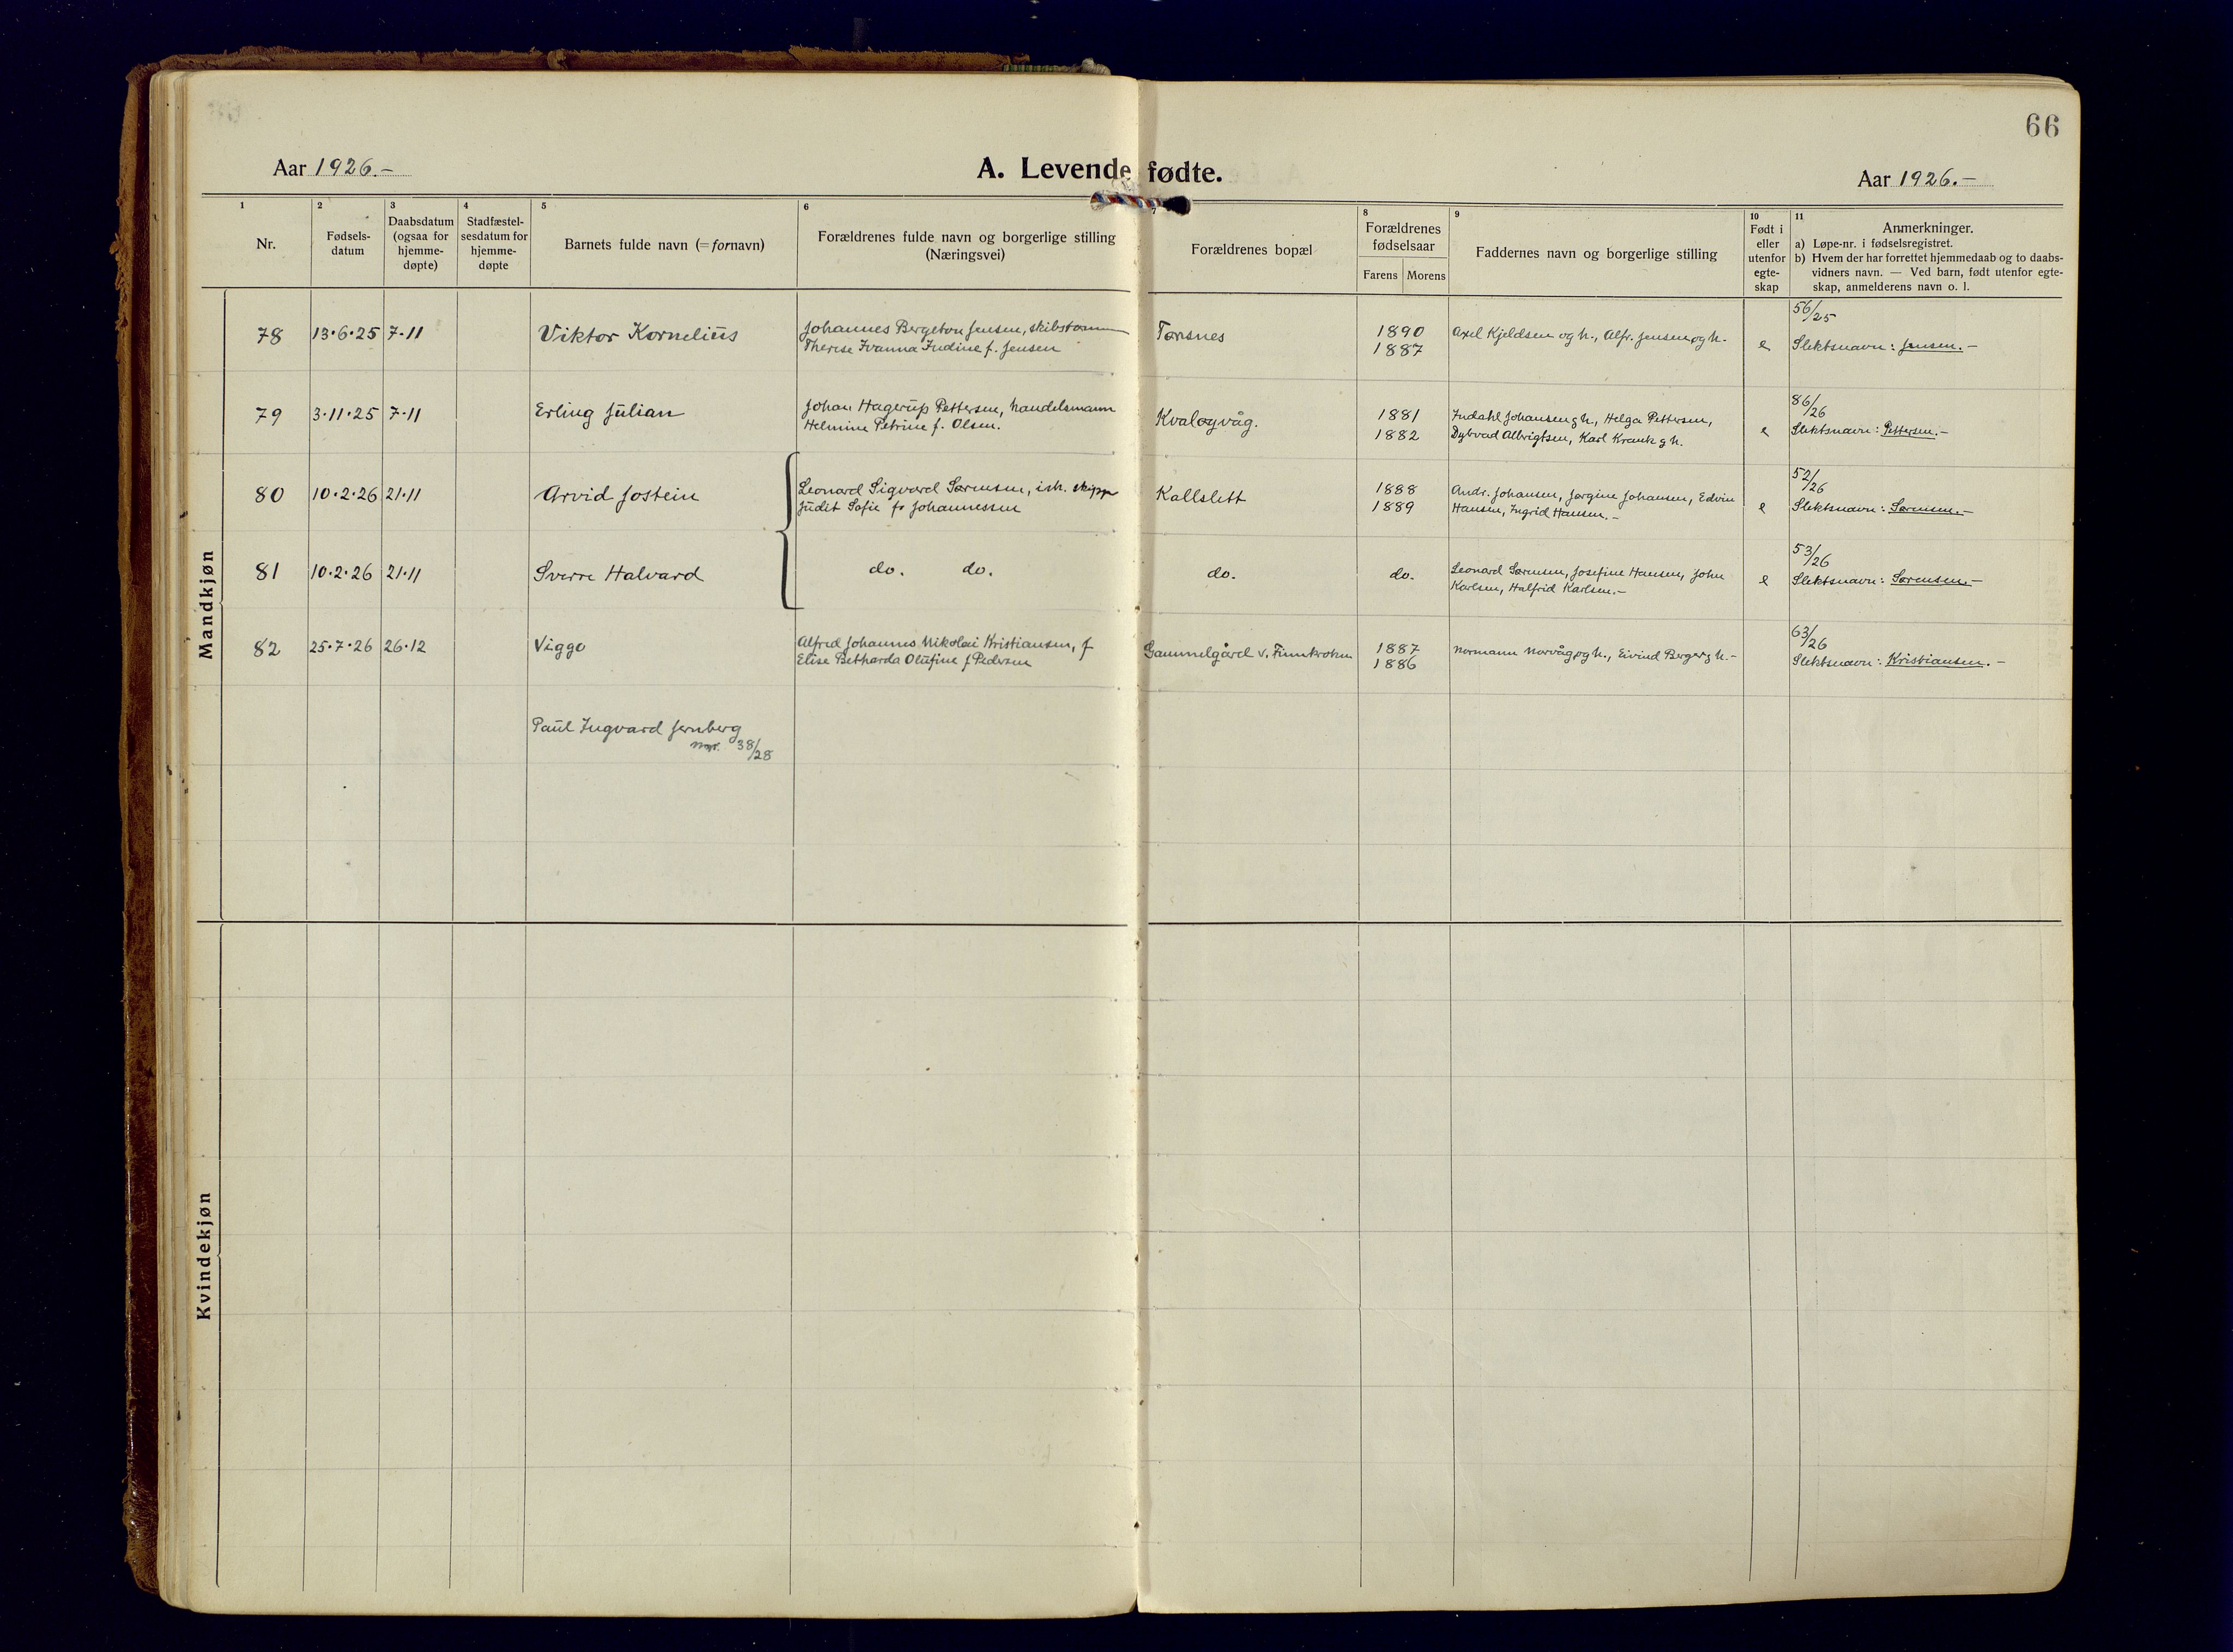 66
Aar 1926.-
A. Levende fødte.
Aar 1926.-
1 2 3 4 5 6 7 8 9 10 11
Nr.
Fødsels-
datum
Daabsdatum
(ogsaa for
hjemme-
døpte)
Stadfæstel-
sesdatum for
hjemme-
døpte
Barnets fulde navn (= fornavn)
Forældrenes fulde navn og borgerlige stilling
(Næringsvei)
Forældrenes bopæl
Forældrenes
fødselsaar
Farens Morens
Faddernes navn og borgerlige stilling
Født i
eller
utenfor
egte-
skap
Anmerkninger.
a) Løpe-nr. i fødselsregistret.
b) Hvem der har forrettet hjemmedaab og to daabs-
vidners navn. — Ved barn, født utenfor egte-
skap, anmelderens navn o. l.
Mandkjøn
78 13·6·25 7-11 Viktor Kornelius
Johannes Bergeton Jensen,
Therese Ivanna Indine f. Jensen
Torsnes
1890
1887
Axel Kjeldsen og h., Alfr. Jensen og h.
e
56/25
Slektsnavn: Jensen.-
79 3·11·25 7-11 Erling Julian
Johan Hagerup Pettersen, handelsmann
Helmine Petrine f. Olsen.
Kvaløyvåg.
1881
1882
Indahl Johansen g h., Helga Pettersen,
Dybvad Albrigtsen, Karl g h.
e
86/26
Slektsnavn: Pettersen.-
80 10·2·26 21·11 Arvid Jostein
Leonard Sigvard Sørensen, ish. skipper
Judit Sofie f. Johannessen
Kallslett
1888
1889
Andr. Johansen, Jørgine Johansen, Edvin
Hansen, Ingrid Hansen.-
e
52/26
Slektsnavn: Sørensen.-
81 10·2·26 21·11 Sverre Halvard
do. do.
do.
do.
Leonard Sørensen, Josefine Hansen, John
Karlsen, Halfrid Karlsen.-
e
53/26
Slektsnavn: Sørensen.-
82 25·7·26 26·12 Viggo
Alfred Johannes Nikolai Kristiansen, f
Elise Betharda Olufine f Pedersen
Gammelgård v. Finnkroken
1887
1886
Normann Norvåg og h., Eivind Berger g h.-
63/26
Slektsnavn: Kristiansen.-
Paul Ingvard Jernberg
38/28
Kvindekjøn